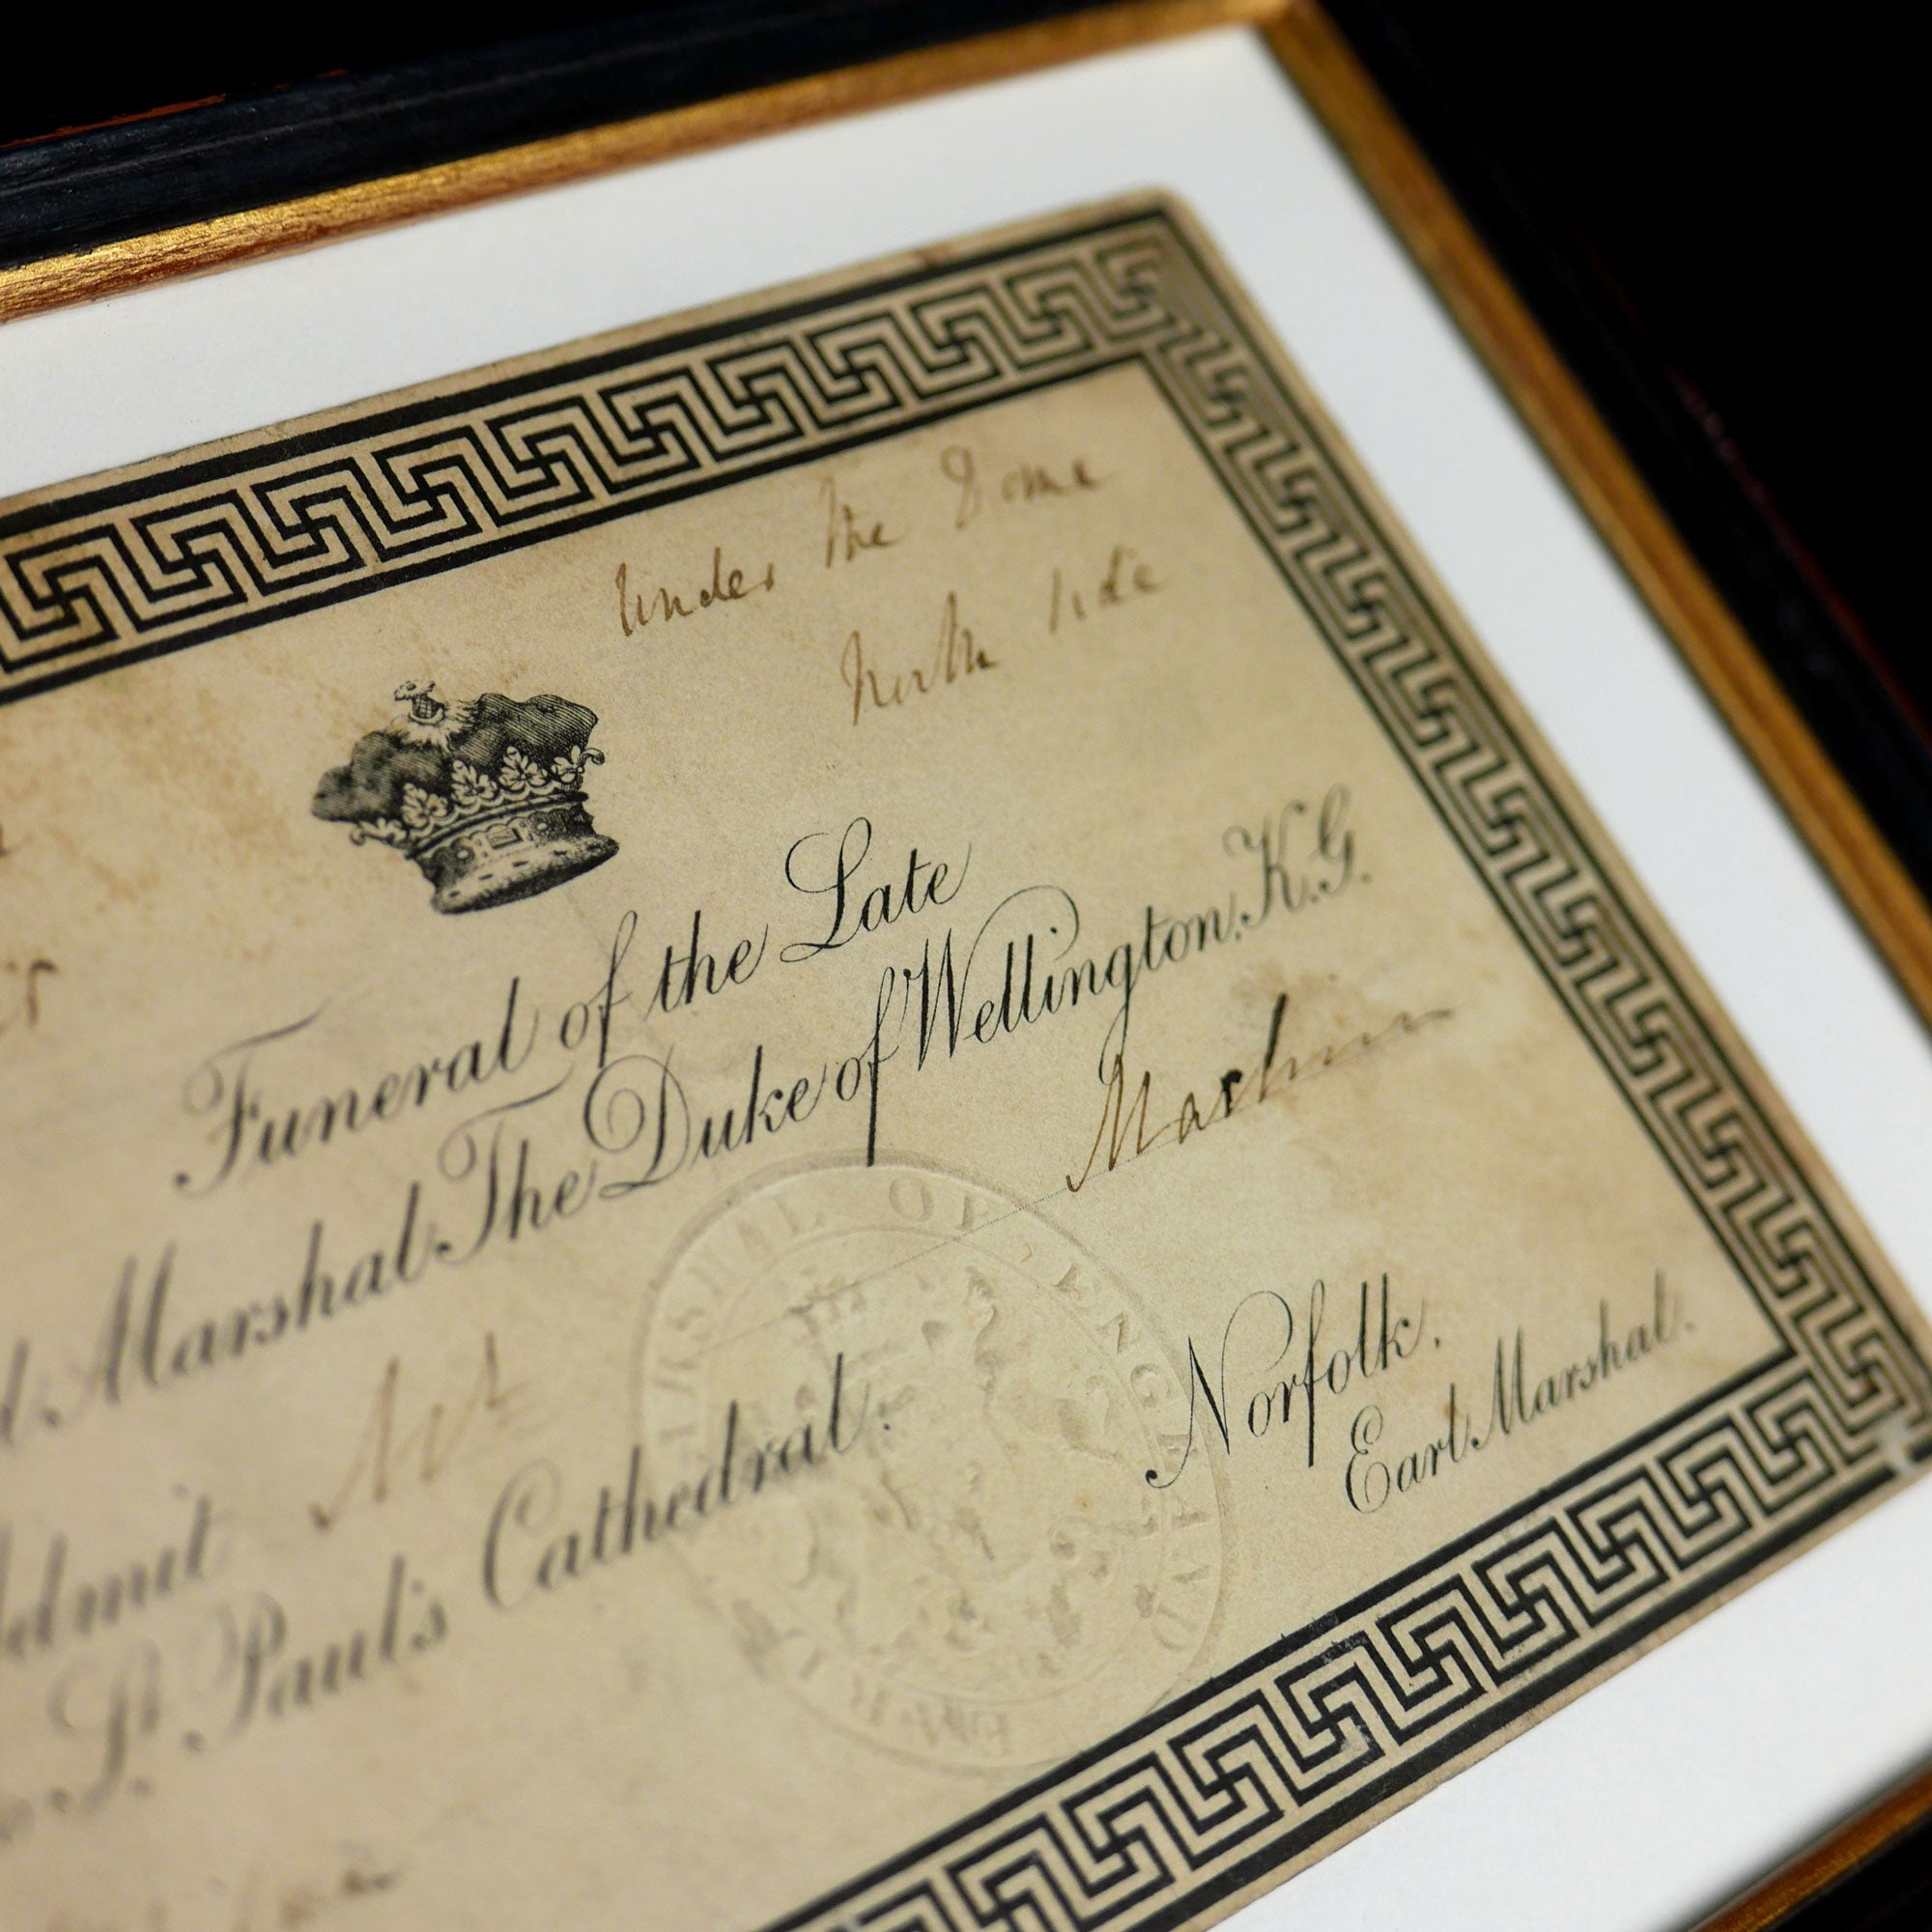 Under the Dome
North side
Funeral of the Late
Marshal The Duke of Wellington, K.G.
Admit
St. Paul's Cathedral.
Norfolk.
Earl Marshal.
MARSHAL OF ENGLAND